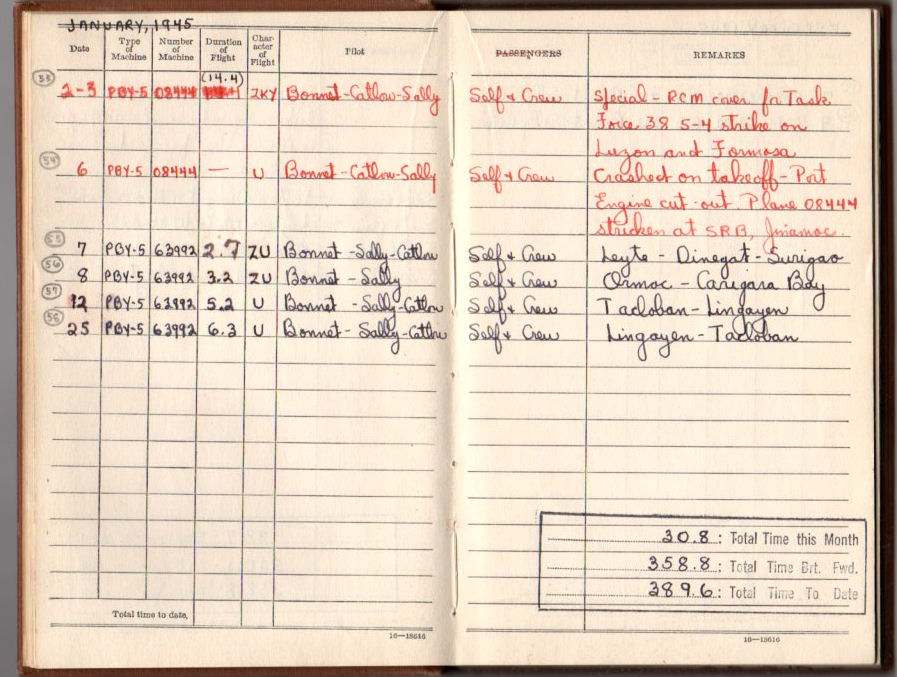 JANUARY, 1945
Date Type of Machine Number of Machine Duration of Flight Character of Flight Pilot PASSENGERS REMARKS
(14.4)
53 2-3 PBY-5 08444 ZKY Bonnet-Catlow-Sally Self & Crew Special - RCM cover for Task
Force 38 5-4 strike on
Luzon and Formosa
54 6 PBY-5 08444 — U Bonnet-Catlow-Sally Self & Crew Crashed on takeoff - Port
Engine cut-out. Plane 08444
stricken at SRB,
55 7 PBY-5 63992 2.7 ZU Bonnet-Sally-Catlow Self & Crew Leyte - Dinegat - Surigao
56 8 PBY-5 63992 3.2 ZU Bonnet - Sally Self & Crew Ormoc - Carigara Bay
57 12 PBY-5 63992 5.2 U Bonnet - Sally-Catlow Self & Crew Tacloban-Lingayen
58 25 PBY-5 63992 6.3 U Bonnet - Sally-Catlow Self & Crew Lingayen-Tacloban
30.8 : Total Time this Month
358.8 : Total Time Brt. Fwd.
389.6 : Total Time To Date
Total time to date,
16—18616 16—18616